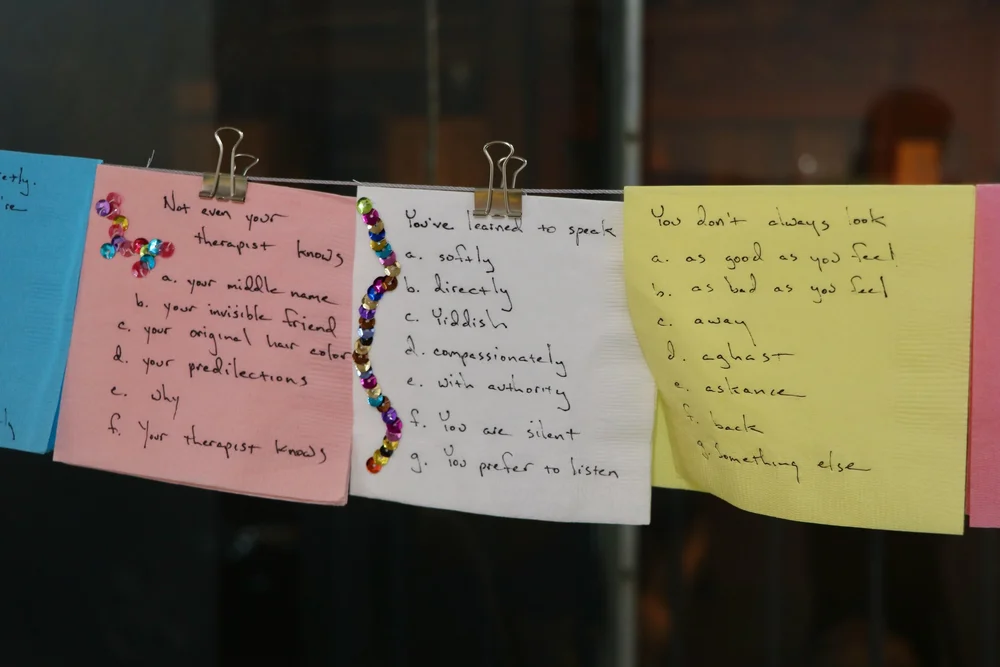 etly.
Not even your
therapist knows
a. your middle name
b. your invisible friend
c. your original hair color
d. your predilections
e. why
f. Your therapist knows
You've learned to speak
a. softly
b. directly
c. Yiddish
d. compassionately
e. with authority
f. You are silent
g. You prefer to listen
You don't always look
a. as good as you feel
b. as bad as you feel
c. away
d. aghast
e. askance
f. back
g. Something else